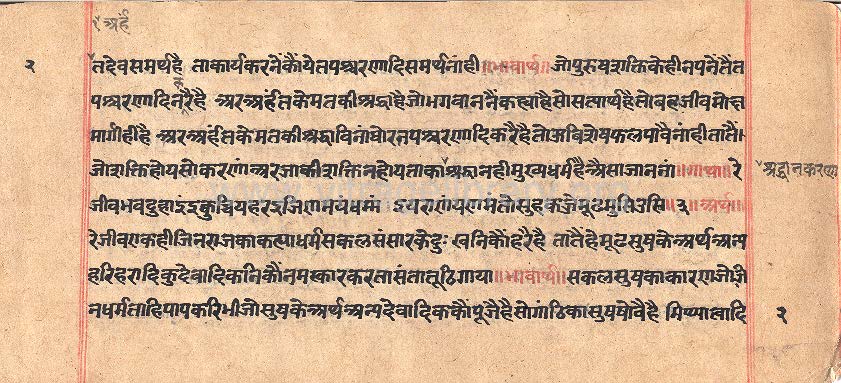 १ अर्ह
२
त देव समर्थ है ता कार्य करनें कौं ये तपश्चरणादि समर्थ नांही ॥भावार्थ॥ जो पुरुष शक्ति के हीनपनें तैं त
पश्चरणादि न करै है अर अर्हंत के मत की श्रद्धा है जो भगवान नैं कह्या है सो सत्यार्थ है तो वह जीव मोक्ष
मार्गी ही है अर अर्हंत के मत की श्रद्धा विनां घोर तपश्चरणादि करै है तोऊ विशेष फल पावै नांही तातैं।
जो शक्ति होय सो करणां अर जाकी शक्ति न होय ताका श्रद्धान ही मुख्य धर्म है ऐसा जाननां ॥गाथा॥ रे
श्रद्धान करणा
जीव भव दुहाइं इक्कु चिय हरइ जिणमयं धम्मं इयराणं पणमंतो सुहकज्जे मूढ मुसिउसि ३ ॥३॥अर्थ॥
रे जीव एक ही जिनराज का कह्या धर्म सकल संसार के दुःखनि कौं हरै है तातैं हे मूढ सुष के अर्थ अन्य
हरिहरादि कुदेवादिकनि कौं नमस्कार करता संता तू ठिगाया ॥भावार्थ॥ सकल सुष का कारण जो जै
न धर्म ताहि पाय करि भी जो सुष के अर्थ अन्य देवादिक कौं पूजै है सो गांठि का सुष षोवै है मिथ्यात्वादि
२